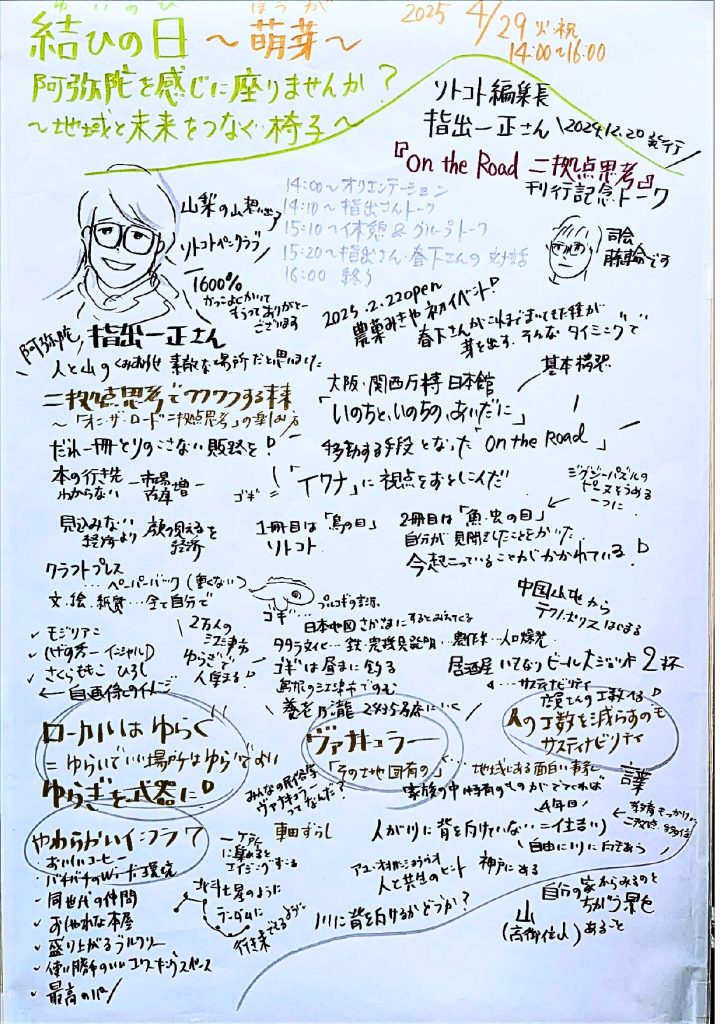 ゆいのひ
ほうが
結びの日 ～萌芽～
2025 4/29 火・祝
14:00～16:00
阿弥陀を感じに座りませんか?
～地域と未来をつなぐ椅子～
ソトコト編集長
指出一正さん
2024.12.20発行
『On the Road 二拠点思考』
刊行記念トーク
14:00～オリエンテーション
14:10～指出さんトーク
15:10～休憩&グループトーク
15:20～指出さん・春下さんの対話
16:00 終了
山梨の山
ソトコトペンクラブ
1600%
かっこよくかいて
もらってありがとー
ございます
司会
です
阿弥陀
指出一正さん
人と山の 素敵な場所だと思いました
2025.2.22open
初イベント!
春下さんがこれまでまいてきた種が
芽を出す、そんなタイミングで
二拠点思考でワクワクする未来
～「オン・ザ・ロード二拠点思考」の楽しみ方
大阪・関西万博 日本館
基本構想
「いのちと、いのちの、あいだに」
だれ一冊とりのこさない販路を!
移動する手段となった「On the Road」
本の行き先
わからない
市場
在庫増
ゴギ=「イワナ」に視点をおとしこんだ
ジグソーパズルの
ピースをうめる
一つに
見込みない
経済より
顔の見える
経済
1冊目は「鳥の目」
ソトコト
2冊目は「魚・虫の目」
自分が見聞きしたことをかいた
今起こっていることがかかれている!
クラフトプレス
…ペーパーバック(重くない)
文・絵・紙質…全て自分で
モジリアニ
さくらももこ ひろし
←自画像とのイメージ
2万人の
ゆらぎで
人集まる!
ゴギ…
日本地図さかさまにするとみえてくる
中国山地から
テクノポリスはじまる
タタラ文化…鉄・農機具発明…農作業…人口爆発
ゴギは昼まに釣る
居酒屋 いきなりビール大ジョッキ2杯
サスティナビリティ
店員さんの工数へる!
養老乃瀧 2435店にいく
ローカルはゆらぐ
=ゆらいでいい場所はゆらいでよい
ゆらぎを武器に!
ヴァナキュラー
「その土地固有の」…地域にある面白い事象
人の工数を減らすのも
サスティナビリティ
みんなの民俗学
ヴァナキュラー
ってなんだ?
家族の中に特有のものがでてくれば
4年目!
やわらかいインフラ 7
・おいしいコーヒー
・バチバチのWi-Fi環境
同世代の仲間
おしゃれな本屋
盛り上がるブルワリー
使い勝手のいいコワーキングスペース
最高のパン
一ヶ所
に集めると
エイジングする
軸ずらし
北斗七星のように
ランダムに
行き来できるように
人が川に背を向けていない=住吉)
自由に川に向きあう
人と共生のヒント
神戸にある
川に背を向けるかどうか?
自分の家からみるのと
ちがう景色
山
あること